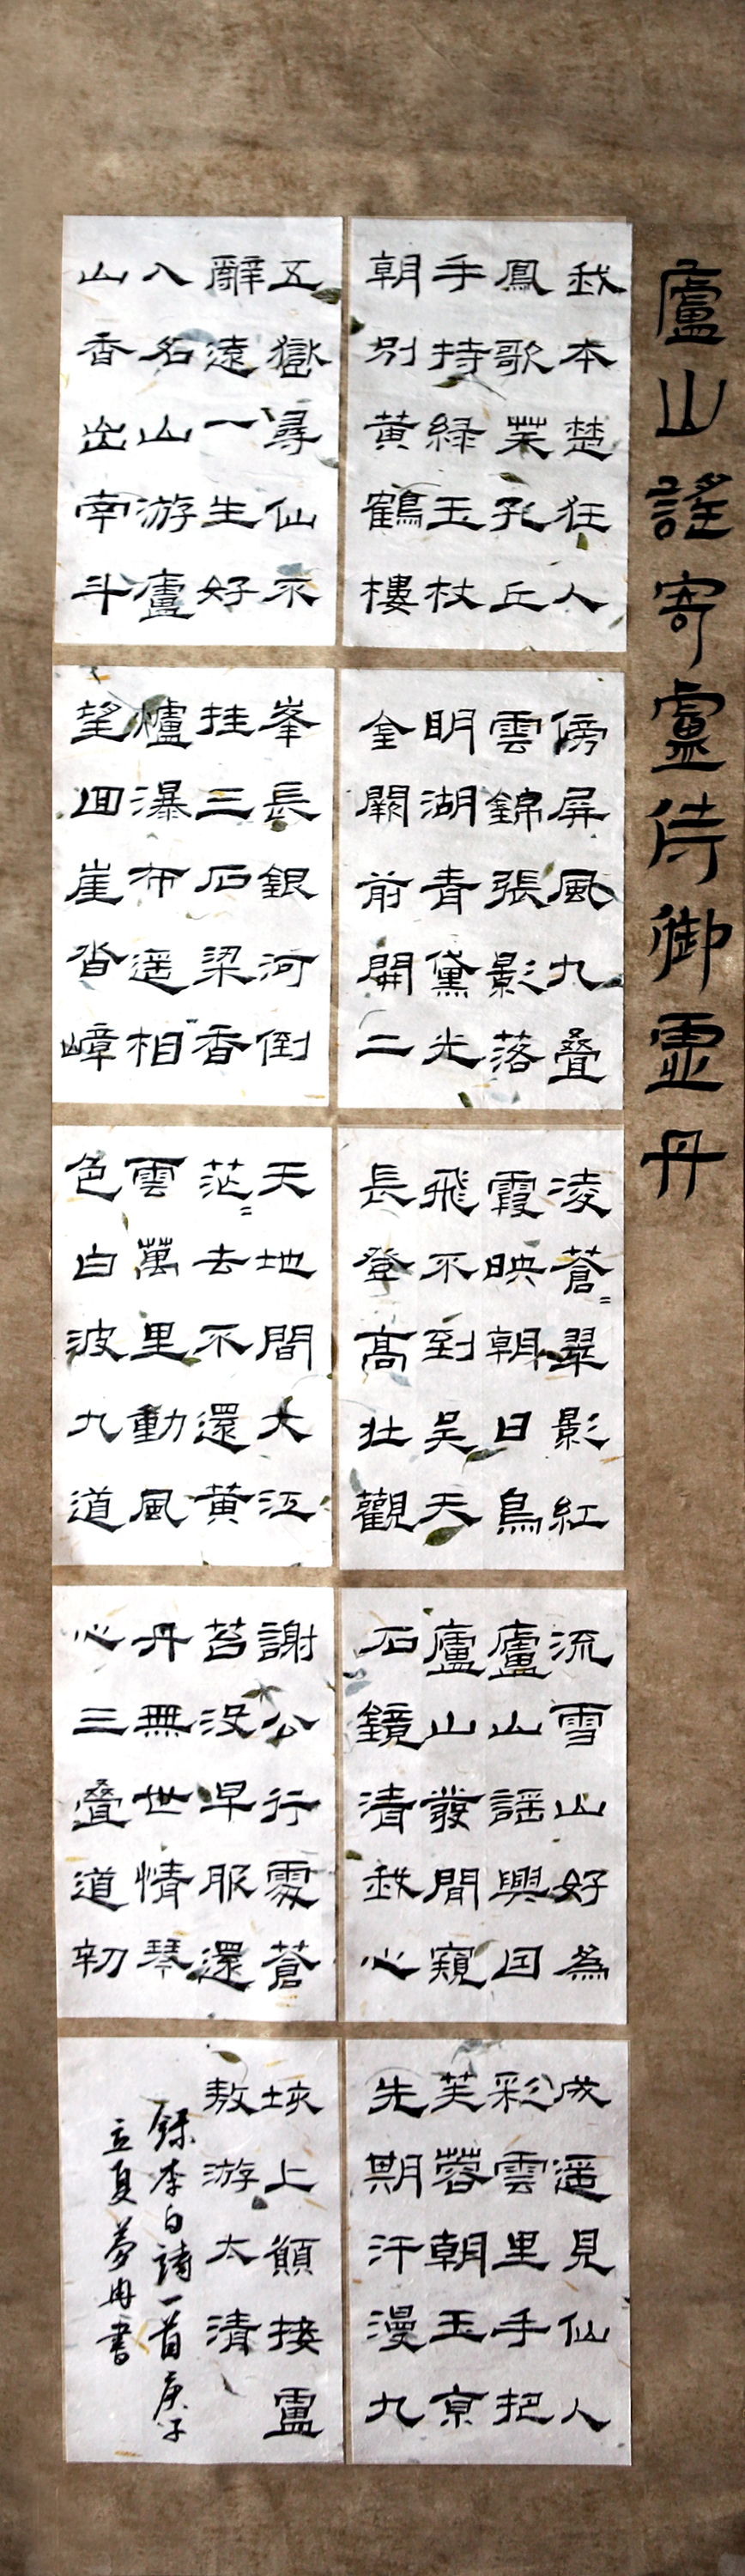 廬山謠寄盧侍御虛舟
我本楚狂人
鳳歌笑孔丘
手持緑玉杖
朝別黃鶴樓
五嶽尋仙不
辭遠一生好
入名山游廬
山香出南斗
傍屏風九叠
雲錦張影落
明湖青黛光
金闕前開二
峯長銀河倒
挂三石梁香
爐瀑布遥相
望囬崖沓嶂
凌蒼=翠影紅
霞映朝日鳥
飛不到吳天
長登高壯觀
天地間大江
茫=去不還黃
雲萬里動風
色白波九道
流雪山好為
廬山謠興因
廬山發閒窺
石鏡清我心
謝公行處蒼
苔没早服還
丹無世情琴
心三叠道初
成遥見仙人
彩雲里手把
芙蓉朝玉京
先期汗漫九
垓上願接盧
敖游太清
録李白詩一首庚子
立夏夢冉書